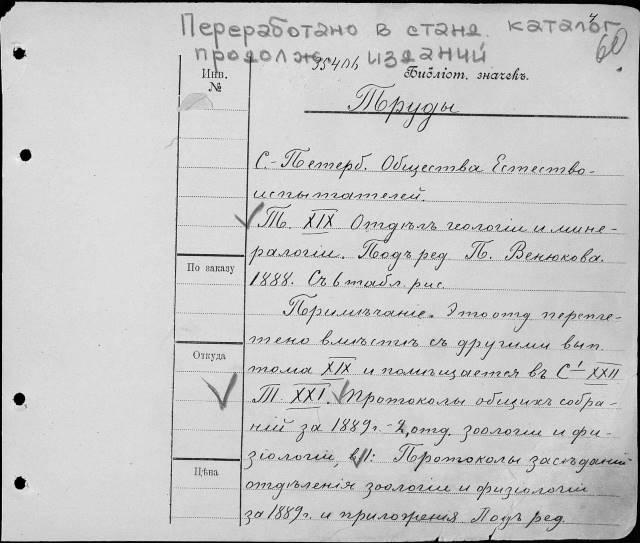 Переработано в станд. каталог
продолж. изданий
60
Инв.
№
95404
Библіот. значекъ.
Труды
С.-Петерб. Общества Естество-
испытателей.
Т. XIX Отдѣлъ геологіи и мине-
ралогіи. Подъ ред. П. Венюкова.
1888. Съ 6 табл. рис.
По заказу
Примѣчаніе. Это отд. перепле-
тено вмѣстѣ съ другими вып.
Откуда
тома XIX и помѣщается въ С1 XXII
Т. XXI. Протоколы общихъ собра-
ній за 1889 г. - 2, отд. зоологіи и фи-
зіологіи, в. II: Протоколы засѣданій
Цѣна
отдѣленія зоологіи и физіологіи
за 1889 г. и приложенія Подъ ред.